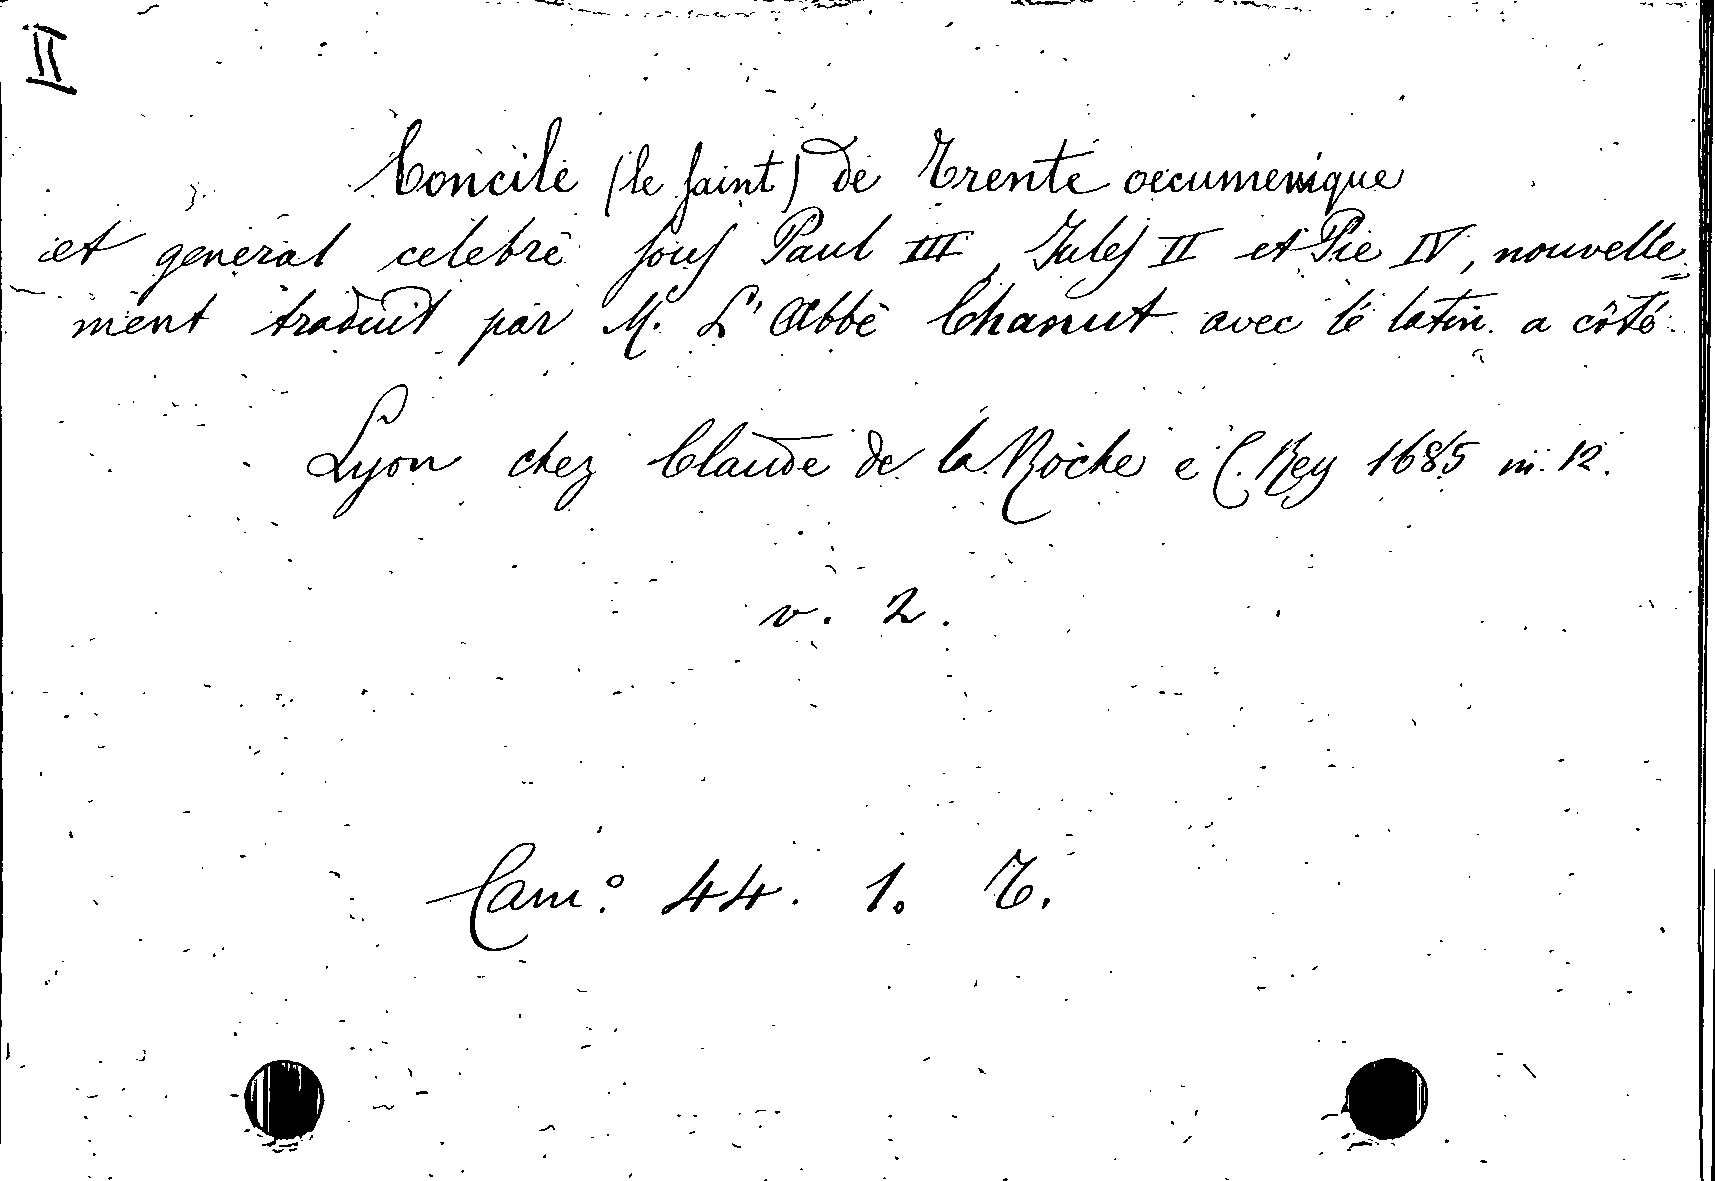 II
Concile (le saint) de Trente oecumenique
et general celebré sous Paul III, Jules II et Pie IV, nouvelle=
ment traduit par M. L'Abbé Chanut avec le latin a côté
Lyon chez Claude de la Roche e C. Rey 1685 in. 12.
v. 2.
Cam: 44. 1. T.